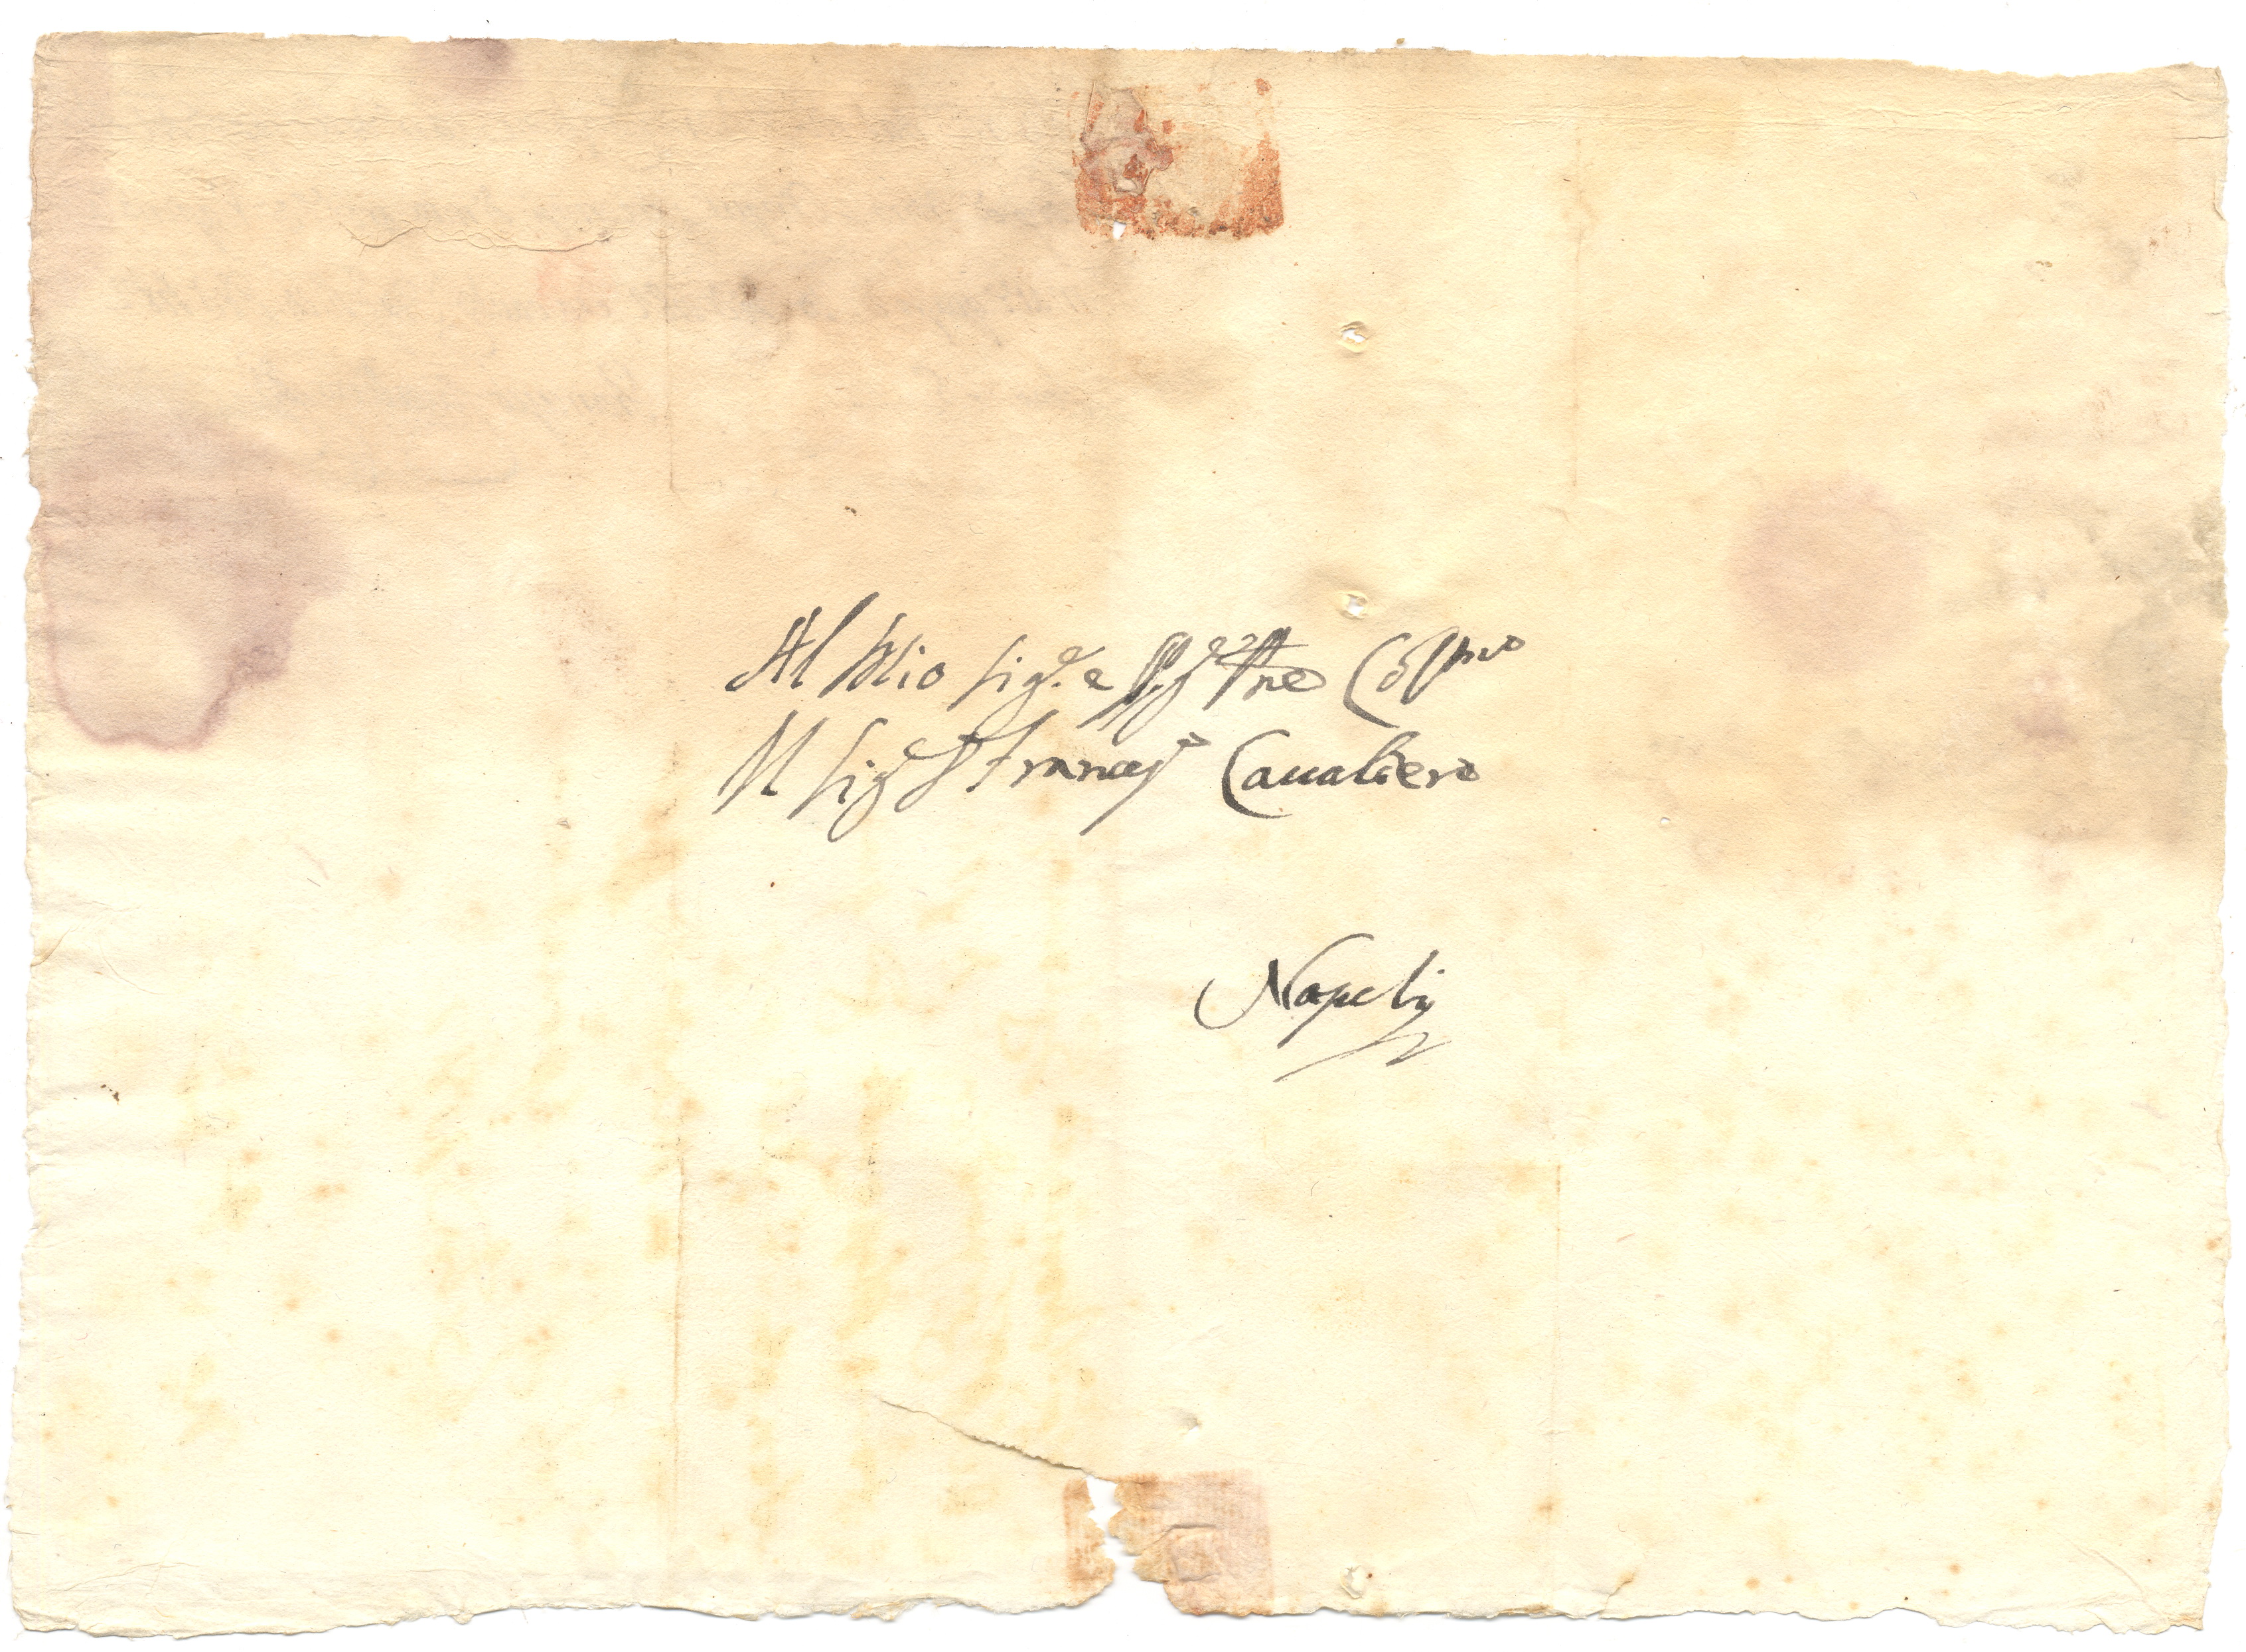 Al Mio Sig.r e Pne Col.mo
Il Sig.r D Franc.o Caualiero
Napoli